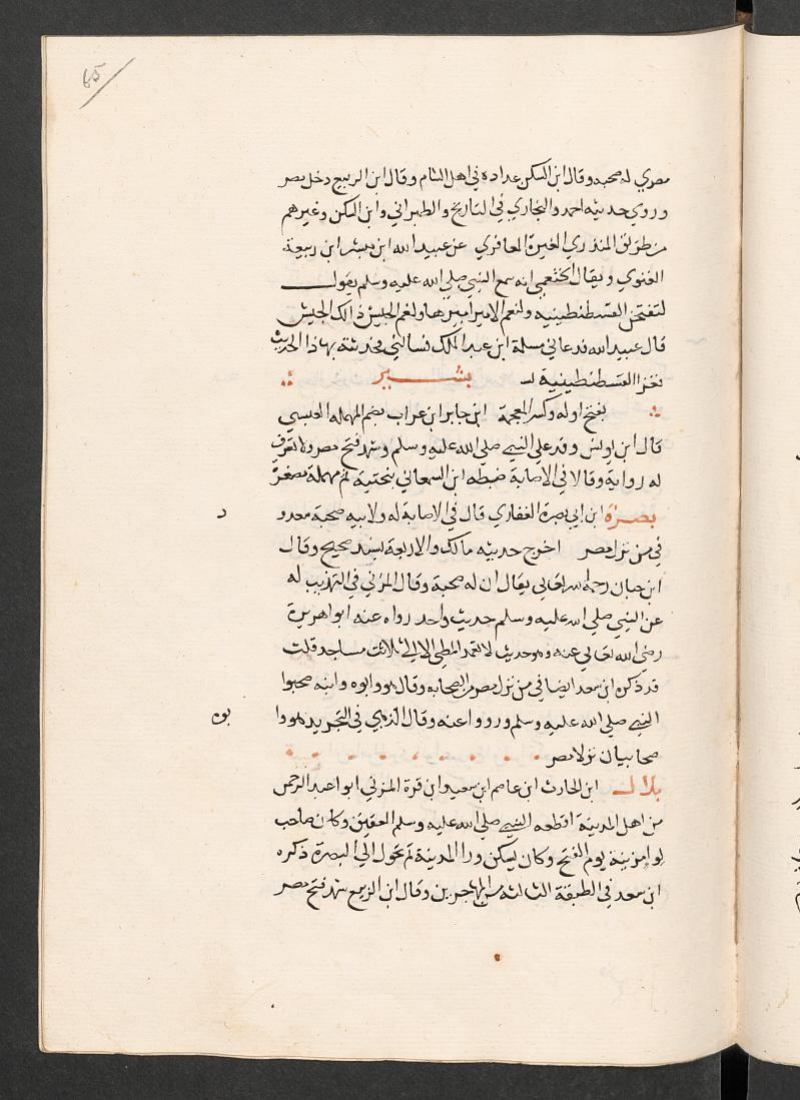 65
مصري له صحبه وقال ابن السكن عداده في اهل الشام وقال ابن الربيع دخل مصر
وروي حديثه احمد والبخاري في التاريخ والطبراني وابن السكن وغيرهم
من طريق المغيرة المعافري عن عبيد الله ابن بشر ابن ربيعة
الغنوي ويقال الخثعمي انه سمع النبي صلي الله عليه وسلم يقول
لتفتحن القسطنطينيه ولنعم الامير اميرها ولنعم الجيش ذالك الجيش
قال عبيد الله فدعاني مسلمة ابن عبد الملك فسالني فحدثته بهاذا الحديث
فغزا القسطنطينية بشير
بفتح اوله وكسر المعجمة ابن جابر ابن عراب بضم المهمله العبسي
قال ابن يونس وفد علي النبي صلي الله عليه وسلم وشهد فتح مصر ولا تعرف
له رواية وقال في الاصابة ضبطه ابن السمعاني بتحتية ثم مهملة مصغرا
بصرة ابن ابي بصرة الغفاري قال في الاصابة له ولابيه صحبة معدود
في من نزل مصر اخرج حديثه مالك والاربعة بسند صحيح وقال
ابن حبان رحمه الله تعالي يقال ان له صحبة وقال المزني في التهذيب له
عن النبي صلي الله عليه وسلم حديث واحد رواه عنه ابو هريرة
رضي الله تعالي عنه وهو حديث لا تعمد المطي الا الي ثلاثت مساجد قلت
قد ذكره ابن سعد ايضا في من نزل مصر من الصحابه وقال هو وابوه وابنه صحبوا
النبي صلي الله عليه وسلم ورووا عنه وقال الذهبي في التجريد هو وابوه
صحابيان نزلا مصر
بلال ابن الحارث ابن عاصم ابن سعيد ابن قرة المزني ابو اعبد الرحمن
من اهل المدينة اقطعه النبي صلي الله عليه وسلم العقيق وكان صاحب
لوا مزينة يوم الفتح وكان يسكن ورا المدينة ثم تحول الي البصرة ذكره
ابن سعد في الطبقة الثالثه من المهاجرين وقال ابن الربيع شهد فتح مصر